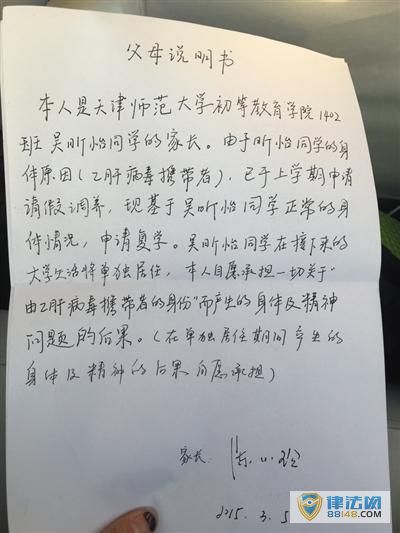 父母说明书
本人是天津师范大学初等教育学院1402
班吴昕怡同学的家长。由于昕怡同学的身
体原因（乙肝病毒携带者），已于上学期申请
请假调养，现基于吴昕怡同学正常的身
体情况，申请复学。吴昕怡同学在接下来的
大学生活将单独居住，本人自愿承担一切关于“
由乙肝病毒携带者的身份”而产生的身体及精神
问题的后果。（在单独居住期间产生的
身体及精神的后果自愿承担）
家长：
2015.3.5
律法网
88148.COM